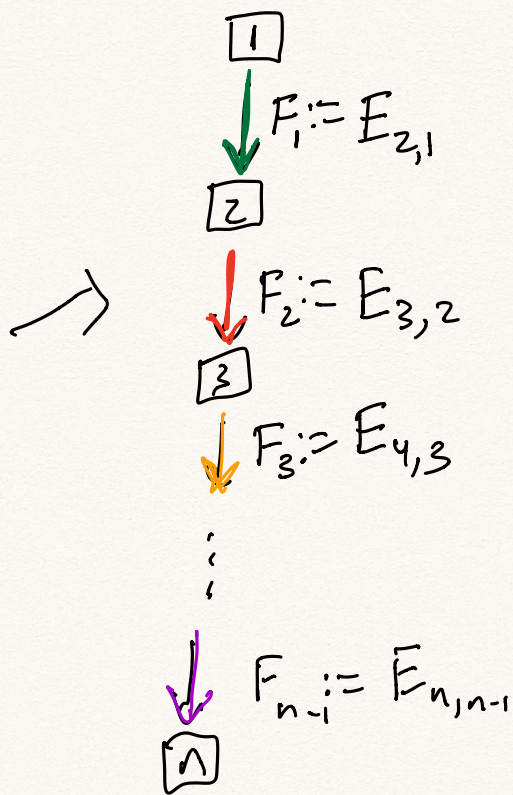 1
F₁ := E₂,₁
2
F₂ := E₃,₂
3
F₃ := E₄,₃
⋮
Fₙ₋₁ := Eₙ,ₙ₋₁
n